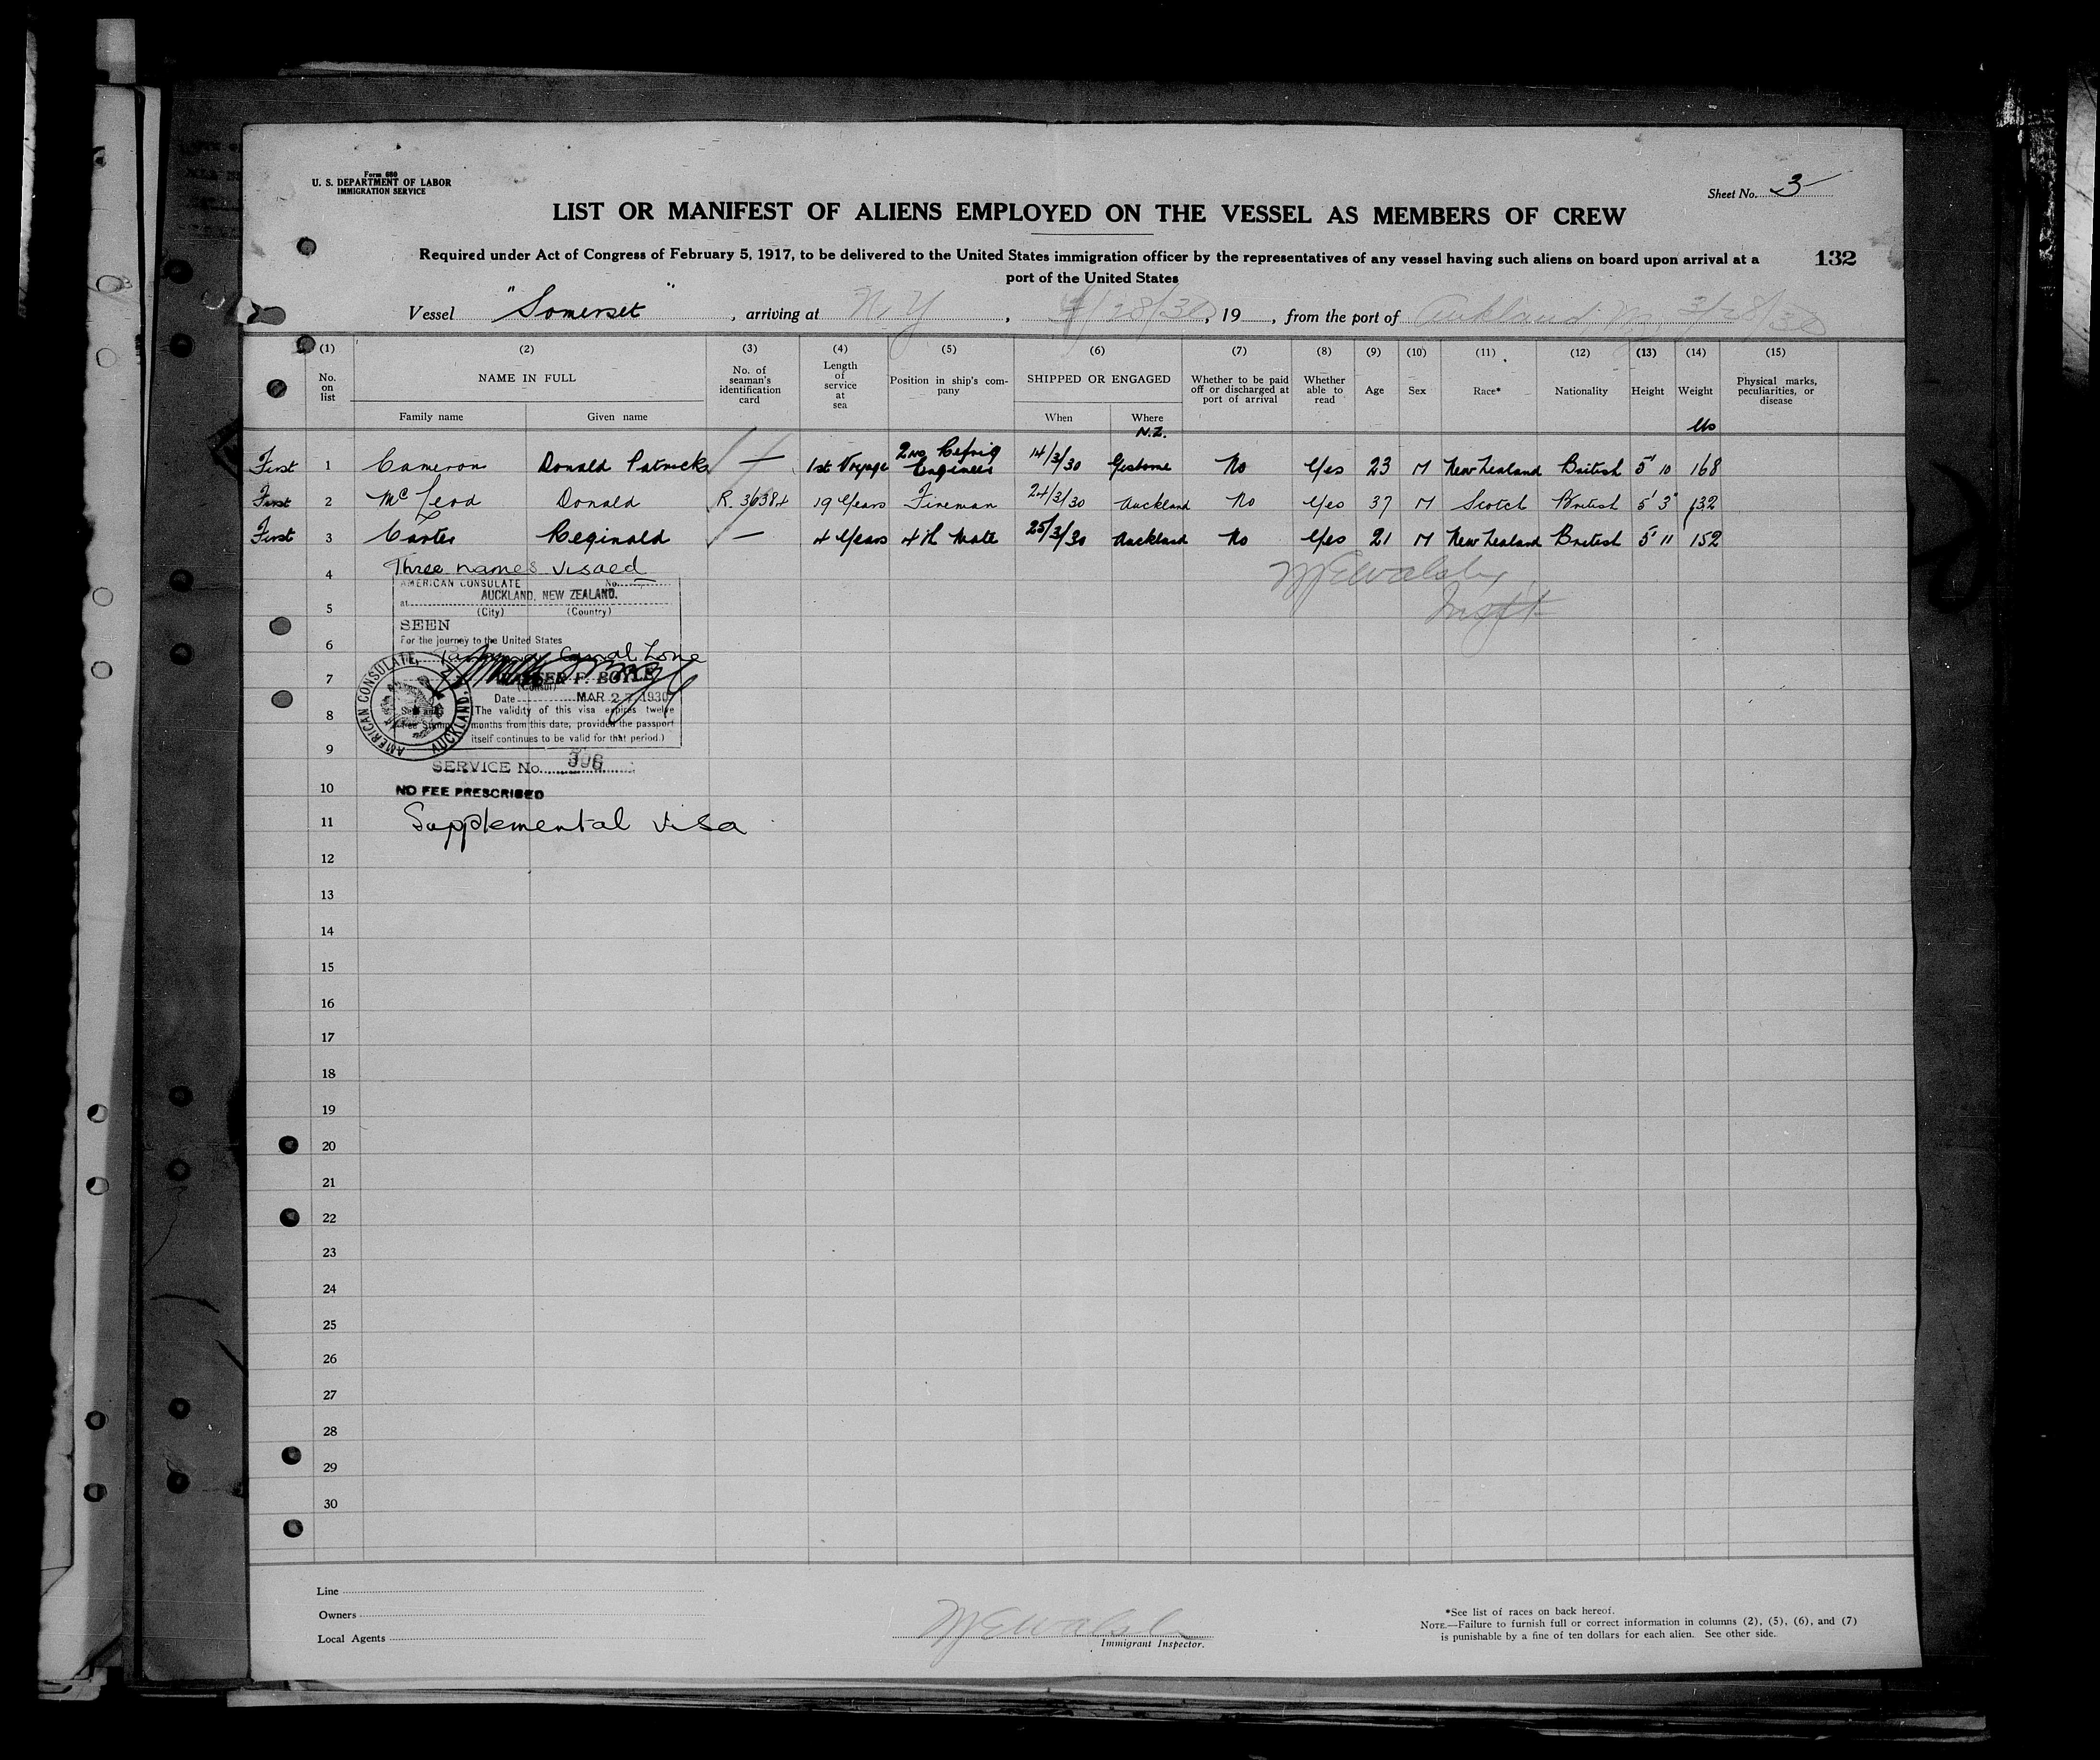 Form 680
U. S. DEPARTMENT OF LABOR
IMMIGRATION SERVICE
Sheet No. 3
LIST OR MANIFEST OF ALIENS EMPLOYED ON THE VESSEL AS MEMBERS OF CREW
Required under Act of Congress of February 5, 1917, to be delivered to the United States immigration officer by the representatives of any vessel having such aliens on board upon arrival at a
port of the United States
132
Vessel "Somerset", arriving at N.Y, 4/28/30, 19, from the port of Aukland, 3/28/30
(1) (2) (3) (4) (5) (6) (7) (8) (9) (10) (11) (12) (13) (14) (15)
No. on list
NAME IN FULL
Family name
Given name
No. of seaman's identification card
Length of service at sea
Position in ship's company
SHIPPED OR ENGAGED
When
Where
N.Z.
Whether to be paid off or discharged at port of arrival
Whether able to read
Age
Sex
Race*
Nationality
Height
Weight
lbs
Physical marks, peculiarities, or disease
First 1 Cameron Donald Patrick — 1st Voyage 2nd Refrig Engineer 14/3/30 Gisborne No Yes 23 M New Zealand British 5' 10 168
First 2 McLeod Donald R. 36384 19 Years Fireman 24/3/30 Auckland No Yes 37 M Scotch British 5' 3" 132
First 3 Carter Reginald — 4 Years 4th Mate 25/3/30 Auckland No Yes 21 M New Zealand British 5' 11 152
4 Three names visaed
AMERICAN CONSULATE No.
at AUCKLAND, NEW ZEALAND.
5 (City) (Country)
SEEN
For the journey to the United States
6 Panama Canal Zone
7 WALTER F. BOYLE
(Consul)
Date MAR 27 1930
8 (The validity of this visa expires twelve
months from this date, provided the passport
itself continues to be valid for that period.)
AMERICAN CONSULATE, AUCKLAND.
9
SERVICE No. 306
10 NO FEE PRESCRIBED
11 Supplemental visa
12
13
14
15
16
17
18
19
20
21
22
23
24
25
26
27
28
29
30
Line
Owners
Local Agents
Immigrant Inspector.
*See list of races on back hereof.
NOTE.—Failure to furnish full or correct information in columns (2), (5), (6), and (7)
is punishable by a fine of ten dollars for each alien. See other side.